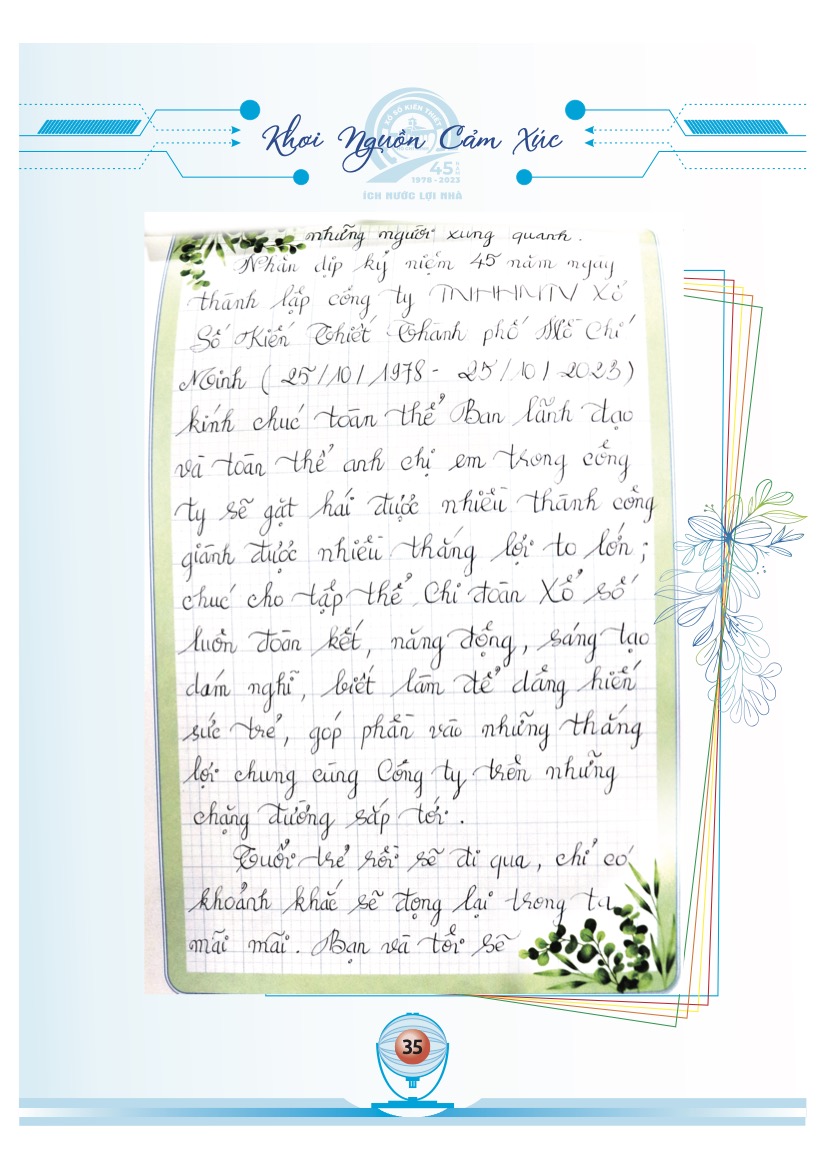 XỔ SỐ KIẾN THIẾT
Khơi Nguồn Cảm Xúc
45 NĂM
1978 - 2023
ÍCH NƯỚC LỢI NHÀ
những người xung quanh.
Nhân dịp kỷ niệm 45 năm ngày
thành lập công ty TNHHMTV Xổ
Số Kiến Thiết Thành phố Hồ Chí
Minh (25/10/1978 - 25/10/2023)
kính chúc toàn thể Ban lãnh đạo
và toàn thể anh chị em trong công
ty sẽ gặt hái được nhiều thành công
giành được nhiều thắng lợi to lớn;
chúc cho tập thể Chi đoàn Xổ số
luôn đoàn kết, năng động, sáng tạo
dám nghĩ, biết làm để dâng hiến
sức trẻ, góp phần vào những thắng
lợi chung cùng Công ty trên những
chặng đường sắp tới.
Tuổi trẻ rồi sẽ đi qua, chỉ có
khoảnh khắc sẽ đọng lại trong ta
mãi mãi. Bạn và tôi sẽ
35